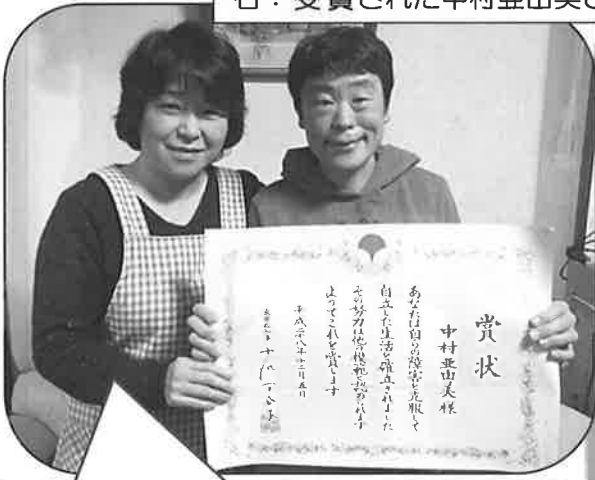 右：受賞された中村亜由美さ
賞状
中村亜由美様
あなたは自らの障害を克服して
自立した生活を確立されました
その努力は他の模範と認められます
よってこれを賞します
平成二十八年十二月五日